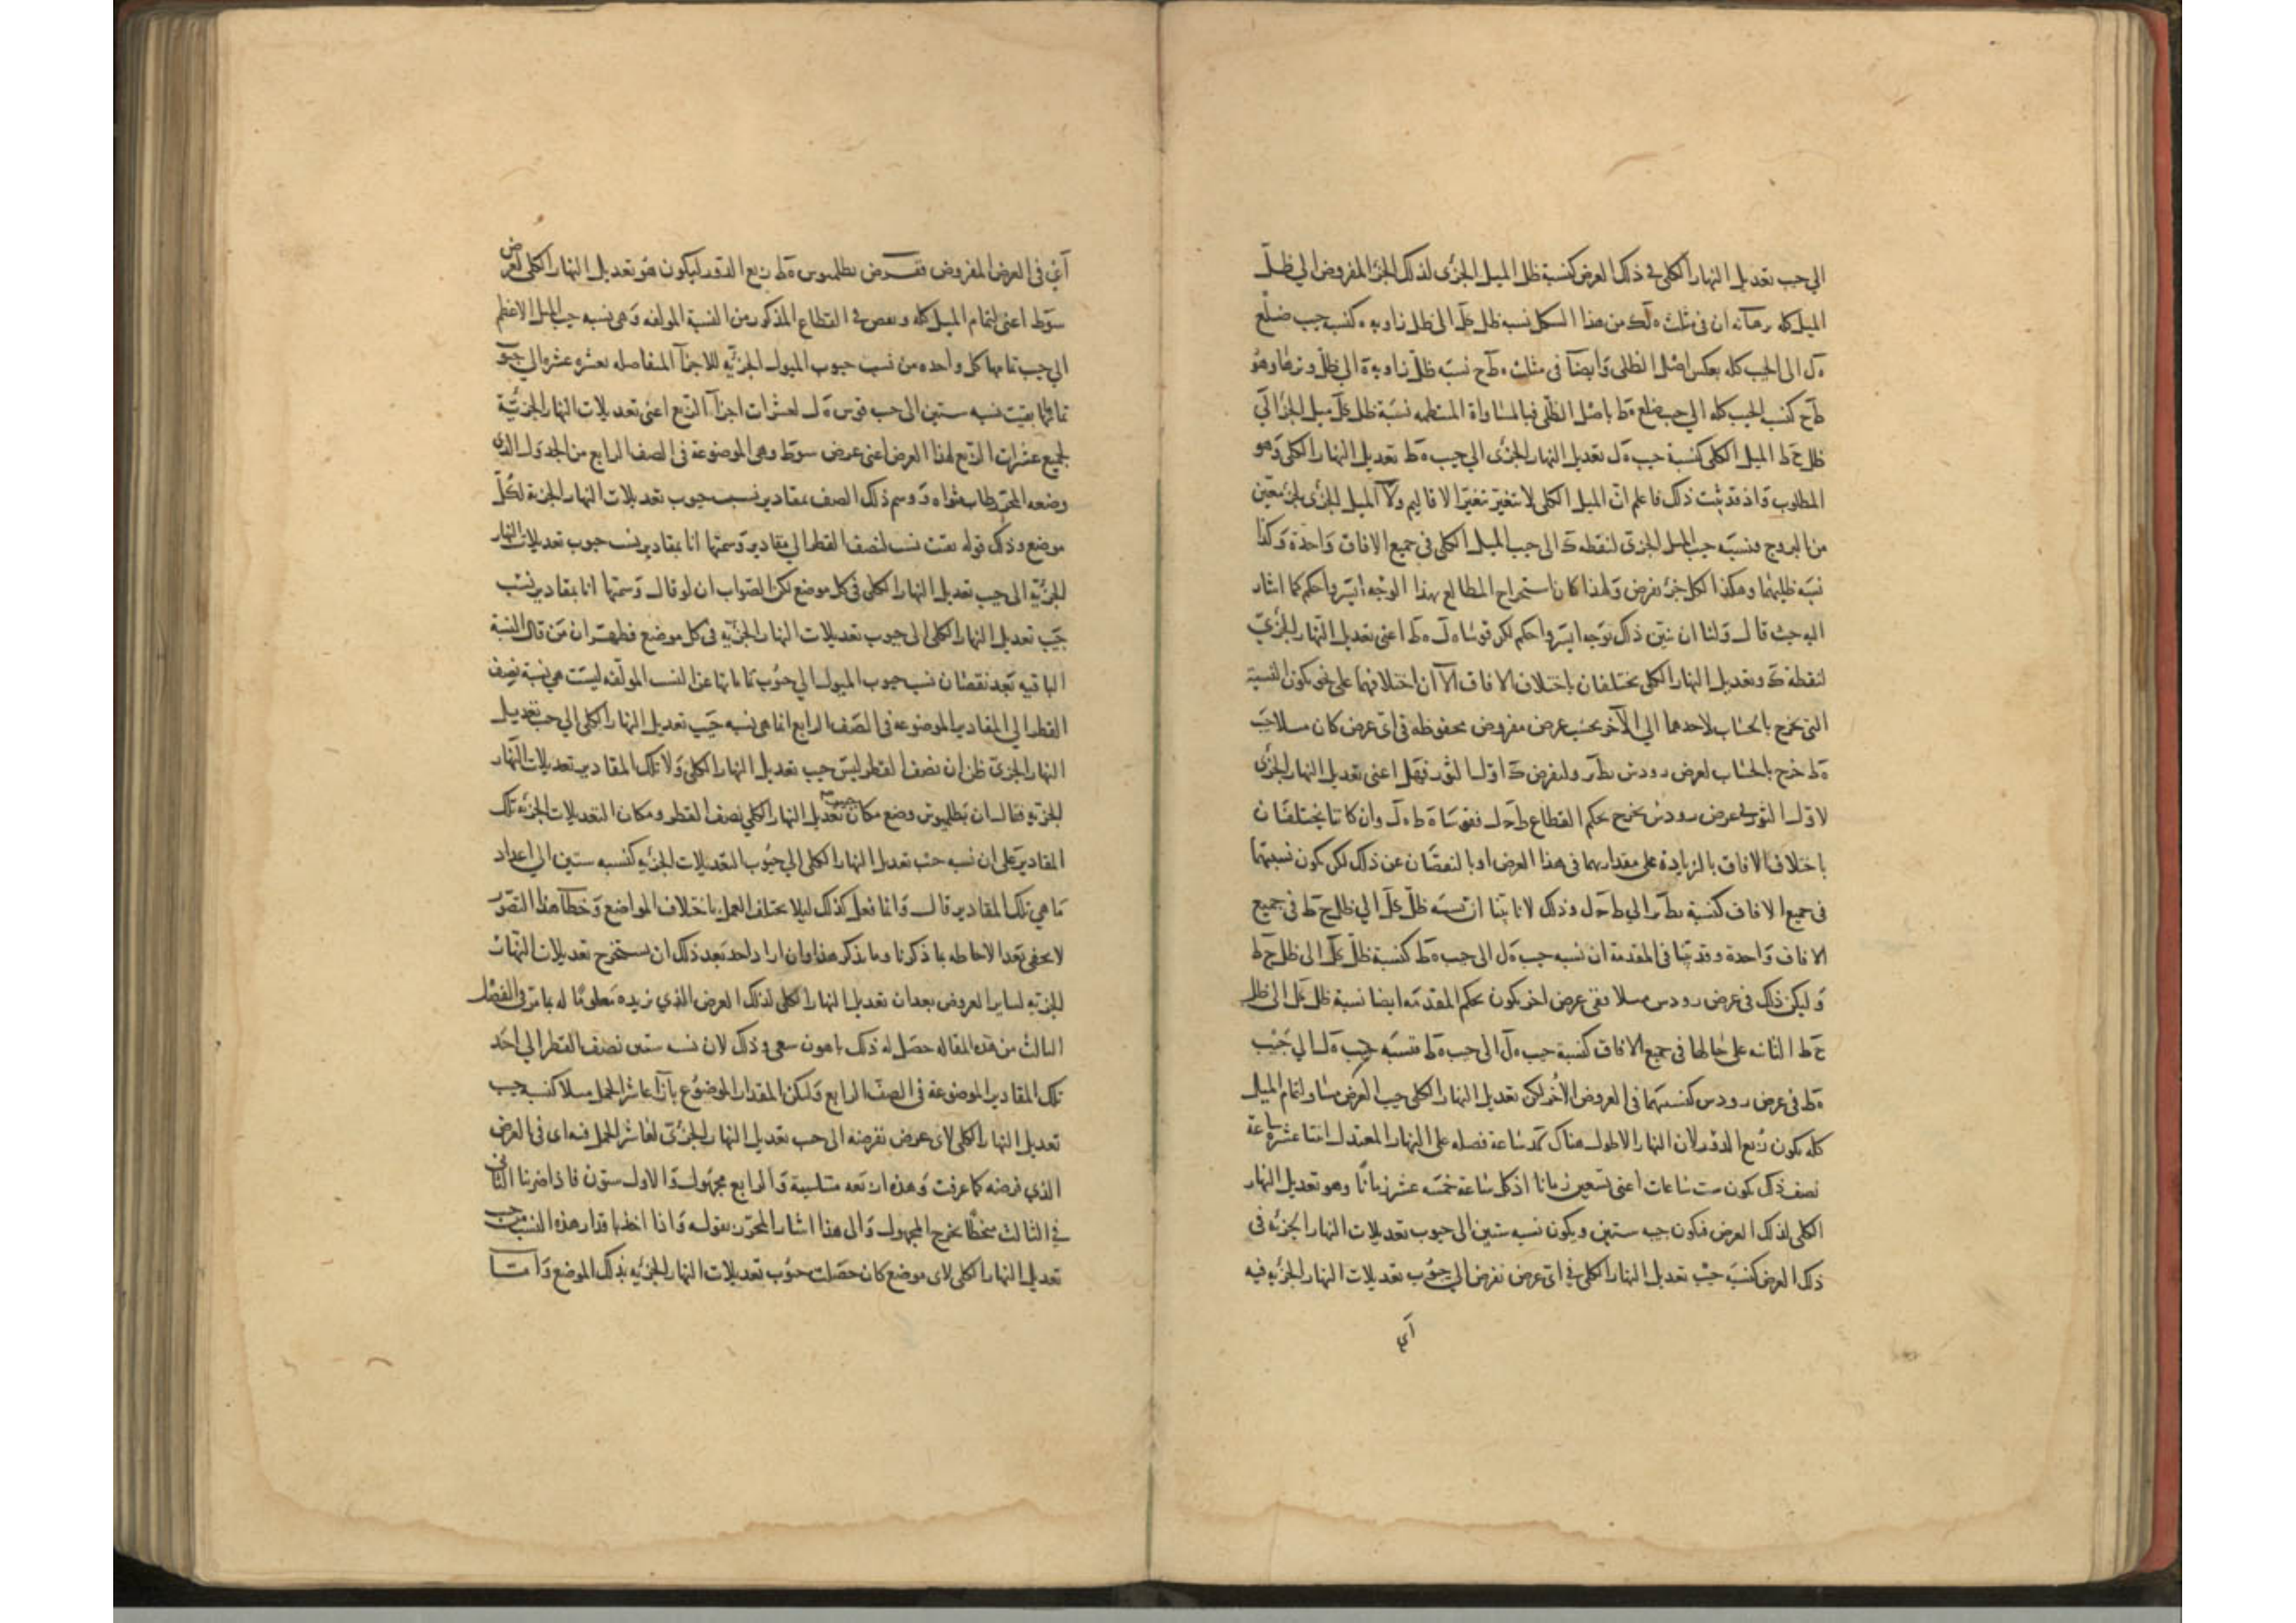 الي جيب تعديل النهار الكلى فى ذلك العرض كنسبة ظل الميل الجزئى لذلك الجزء المفروض الي ظل
الميل كله برهانه ان فى مثلث من هذا الشكل نسبة ظل الى ظل زاوية كنسبة جيب ضلع
الى الجيب كله بعكس اصل الظلى وايضا فى مثلث ه ط ح نسبة ظل زاوية ه الي ظل وترها وهو
ط ح كنسبة الجيب كله الي جيب ضلع ه ط باصل الظلى فبالمساواة المنتظمة نسبة ظل ميل الجزء الي
ظل ح ط الميل الكلى كنسبة جيب ه ل تعديل النهار الجزئى الي جيب ه ط تعديل النهار الكلى وهو
المطلوب واذ قد ثبت ذلك فاعلم ان الميل الكلى لا يتغير بتغير الاقاليم ولا الميل الجزئى لجزء معين
من البروج فنسبة جيب الميل الجزئى لنقطة ك الى جيب الميل الكلى فى جميع الافاق واحدة وكذا
نسبة ظليهما وهكذا لكل جزء يفرض ولهذا كان استخراج المطالع بهذا الوجه ايسر واحكم كما اشار
اليه حيث قال ولنا ان نبين ذلك بوجه ايسر واحكم لكن قوسا ه ل ه ط اعنى تعديل النهار الجزئى
لنقطة ك وتعديل النهار الكلى يختلفان باختلاف الافاق الا ان اختلافهما على نحو يكون النسبة
التى تخرج بالحساب لاحدهما الي الآخر بحسب عرض مفروض محفوظة فى اى عرض كان مثلا جيب
ه ط خرج بالحساب لعرض رودس ولنفرض ك اول الثور فهل اعنى تعديل النهار الجزئى
لاول الثور فى عرض رودس يخرج بحكم القطاع فقوسا ه ط ه ل وان كانتا يختلفان
باختلاف الافاق بالزيادة على مقداريهما فى هذا العرض او بالنقصان عن ذلك لكن يكون نسبتهما
فى جميع الافاق كنسبة الي وذلك لانا بينا ان نسبة ظل الي ظل ح ط فى جميع
الافاق واحدة وقد بينا فى المقدمة ان نسبة جيب ه ل الى جيب ه ط كنسبة ظل الى ظل ح ط
وليكن ذلك فى عرض رودس مثلا وفى عرض اخر يكون بحكم المقدمة ايضا نسبة ظل الى ظل
ح ط الثابتة على حالها فى جميع الافاق كنسبة جيب ه ل الى جيب ه ط فنسبة جيب ه ل الي جيب
ه ط فى عرض رودس كنسبتهما فى العروض الاخر لكن تعديل النهار الكلى حيث العرض مساو لتمام الميل
كله يكون ربع الدور لان النهار الاطول هناك كد ساعة فضله على النهار المعتدل اثنتا عشرة ساعة
نصف ذلك يكون ست ساعات اعنى تسعين زمانا اذ كل ساعة خمسة عشر زمانا وهو تعديل النهار
الكلى لذلك العرض فيكون جيبه ستين ويكون نسبة ستين الى جيوب تعديلات النهار الجزئية فى
ذلك العرض كنسبة جيب تعديل النهار الكلى فى اى عرض نفرض الي جيوب تعديلات النهار الجزئية فيه
اي
اي فى العرض المفروض ففرض بطلميوس ه ط ربع الدور ليكون هو تعديل النهار الكلى لعرض
سو ط اعنى لتمام الميل كله ونقص فى القطاع المذكور من النسبة المولفة وهى نسبة جيب الميل الاعظم
الي جيب تمامها كل واحدة من نسب جيوب الميول الجزئية للاجزآ المتفاصلة بعشرة عشرة الي جيوب
تماماتها بقيت نسبة ستين الى جيب قوس ه ل لعشرات اجزآ الربع اعنى تعديلات النهار الجزئية
لجميع عشرات الربع لهذا العرض اعنى عرض سو ط وهى الموضوعة فى الصف الرابع من الجدول الذى
وضعه المحرر طاب ثواه ووسم ذلك الصف بمقادير نسب جيوب تعديلات النهار الجزئية لكل
موضع وذلك قوله بقيت نسب لنصف القطر الي مقادير وسمتها انا بمقادير نسب جيوب تعديلات النهار
الجزئية الى جيب تعديل النهار الكلى فى كل موضع لكن الصواب ان لو قال وسمتها انا بمقادير نسب
جيب تعديل النهار الكلى الى جيوب تعديلات النهار الجزئية فى كل موضع فظهر ان من قال النسبة
الباقية بعد نقصان نسب جيوب الميول الي جيوب تماماتها عن النسب المولفة ليست هى نسبة نصف
القطر الي المقادير الموضوعة فى الصف الرابع انما هى نسبة جيب تعديل النهار الكلى الي جيب تعديل
النهار الجزئى ظن ان نصف القطر ليس جيب تعديل النهار الكلى ولا تلك المقادير تعديلات النهار
الجزئية فقال ان بطلميوس وضع مكان جيب تعديل النهار الكلى نصف القطر ومكان التعديلات الجزئية تلك
المقادير على ان نسبة جيب تعديل النهار الكلى الي جيوب التعديلات الجزئية كنسبة ستين الي اعداد
ما هى تلك المقادير قال وانما فعل كذلك ليلا يختلف العمل باختلاف المواضع وخطأ هذا التصور
لا يخفى بعد الاحاطة بما ذكرنا وما يذكر هذا وان اراد احد بعد ذلك ان يستخرج تعديلات النهار
الجزئية لساير العروض بعد ان تعديل النهار الكلى لذلك العرض الذي نريده معلوما له بما مر فى الفصل
الثالث من هذه المقالة حصل له ذلك باهون سعى وذلك لان نسبة ستين نصف القطر الي احد
تلك المقادير الموضوعة فى الصف الرابع وليكن المقدار الموضوع بازآ عاشر الحمل مثلا كنسبة جيب
تعديل النهار الكلى لاى عرض نفرضه الى جيب تعديل النهار الجزئى لعاشر الحمل فيه اى فى العرض
الذي فرضه كما عرفت وهذه اربعة متناسبة والرابع مجهول والاول ستون فاذا ضربنا الثانى
فى الثالث منحطا يخرج المجهول والى هذا اشار المحرر بقوله واذا اخذ اقدار هذه النسب من جيب
تعديل النهار الكلى لاى موضع كان حصلت جيوب تعديلات النهار الجزئية بذلك الموضع واما